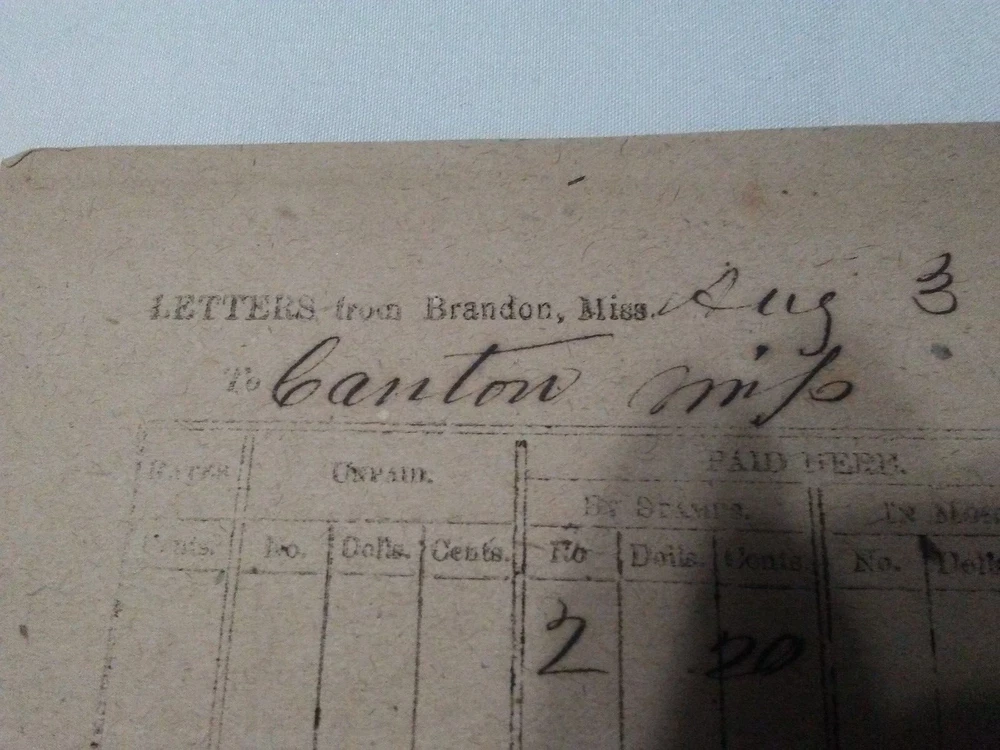 LETTERS from Brandon, Miss. Aug 3
To Canton Miss
RATES UNPAID. PAID HERE.
BY STAMPS. IN MON
Cents. No. Dolls. Cents. No Dolls. Cents. No. Dolls
2 20